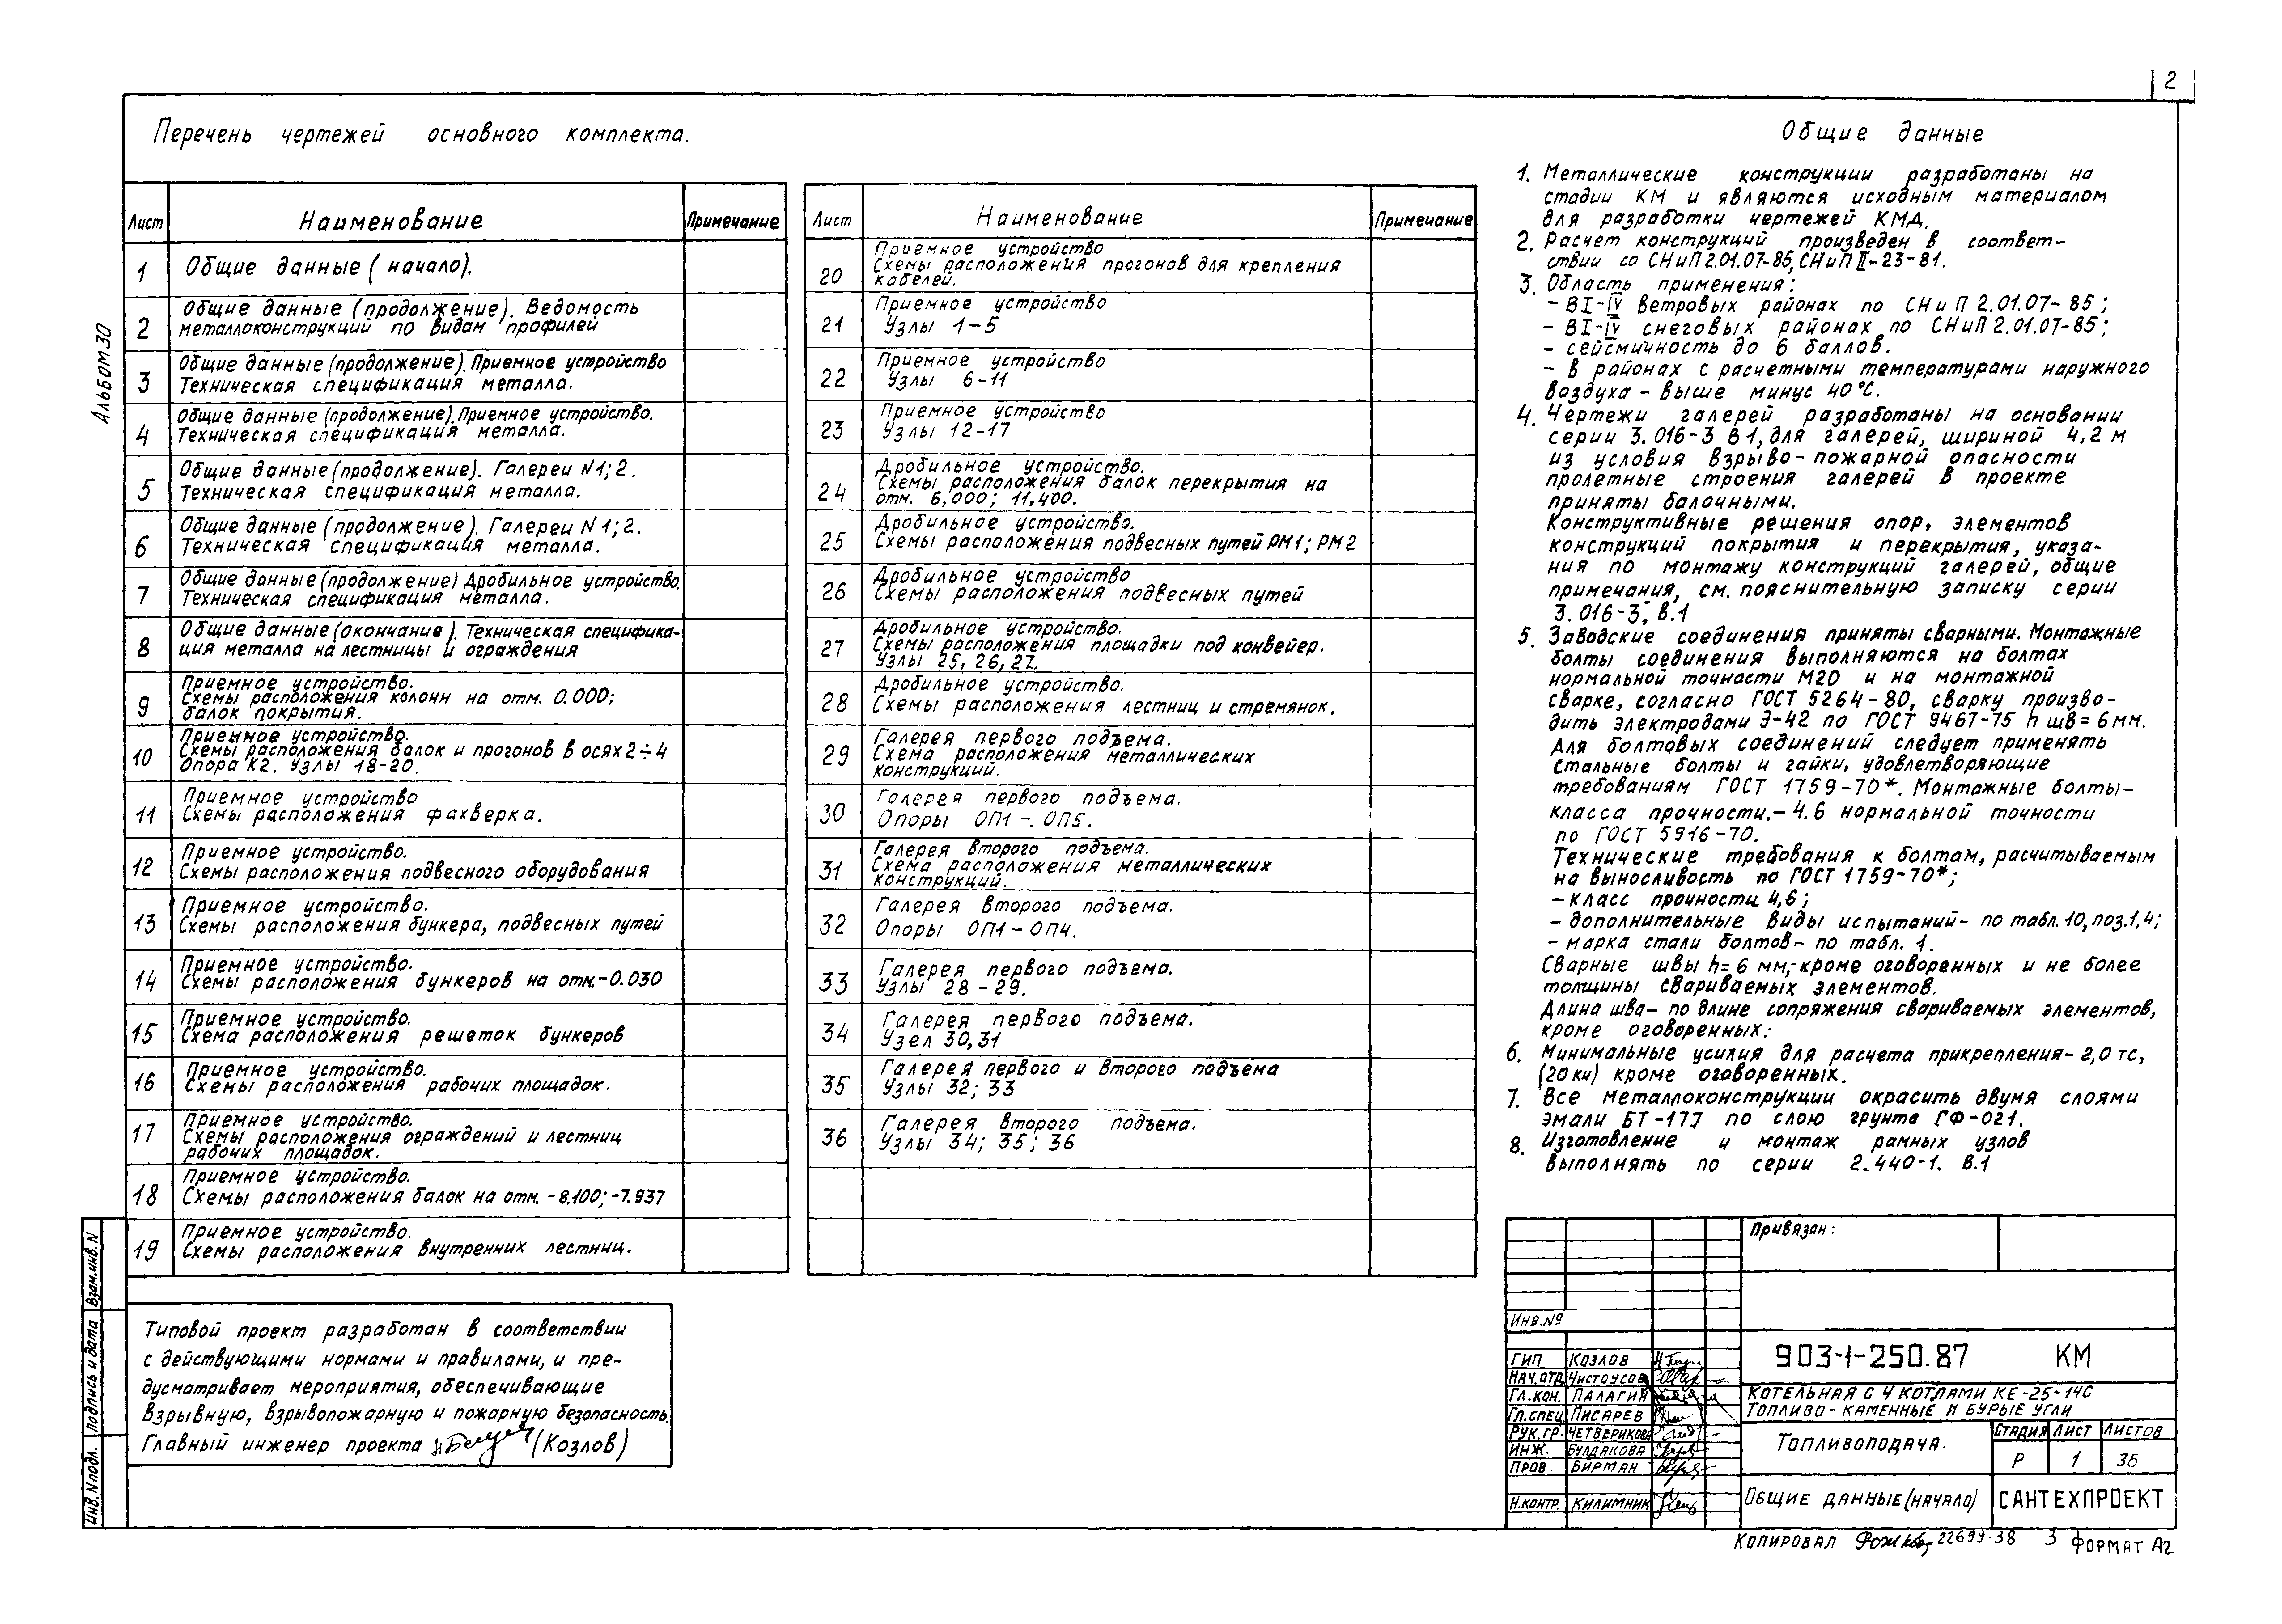 2
Перечень чертежей основного комплекта.
Альбом 30
Лист Наименование Примечание
1 Общие данные (начало).
2 Общие данные (продолжение). Ведомость
металлоконструкций по видам профилей
3 Общие данные (продолжение). Приемное устройство
Техническая спецификация металла.
4 Общие данные (продолжение). Приемное устройство.
Техническая спецификация металла.
5 Общие данные (продолжение). Галереи N1; 2.
Техническая спецификация металла.
6 Общие данные (продолжение). Галереи N1; 2.
Техническая спецификация металла.
7 Общие данные (продолжение) Дробильное устройство.
Техническая спецификация металла.
8 Общие данные (окончание). Техническая специфика-
ция металла на лестницы и ограждения
9 Приемное устройство.
Схемы расположения колонн на отм. 0.000;
балок покрытия.
10 Приемное устройство.
Схемы расположения балок и прогонов в осях 2÷4
Опора К2. Узлы 18-20.
11 Приемное устройство
Схемы расположения фахверка.
12 Приемное устройство.
Схемы расположения подвесного оборудования
13 Приемное устройство.
Схемы расположения бункера, подвесных путей
14 Приемное устройство.
Схемы расположения бункеров на отм.-0.030
15 Приемное устройство.
Схема расположения решеток бункеров
16 Приемное устройство.
Схемы расположения рабочих площадок.
17 Приемное устройство.
Схемы расположения ограждений и лестниц
рабочих площадок.
18 Приемное устройство.
Схемы расположения балок на отм. -8.100; -7.937
19 Приемное устройство.
Схемы расположения внутренних лестниц.
Лист Наименование Примечание
20 Приемное устройство
Схемы расположения прогонов для крепления
кабелей.
21 Приемное устройство
Узлы 1-5
22 Приемное устройство
Узлы 6-11
23 Приемное устройство
Узлы 12-17
24 Дробильное устройство.
Схемы расположения балок перекрытия на
отм. 6,000; 11,400.
25 Дробильное устройство.
Схемы расположения подвесных путей РМ1; РМ2
26 Дробильное устройство
Схемы расположения подвесных путей
27 Дробильное устройство.
Схемы расположения площадки под конвейер.
Узлы 25, 26, 27.
28 Дробильное устройство.
Схемы расположения лестниц и стремянок.
29 Галерея первого подъема.
Схема расположения металлических
конструкций.
30 Галерея первого подъема.
Опоры ОП1-. ОП5.
31 Галерея второго подъема.
Схема расположения металлических
конструкций.
32 Галерея второго подъема.
Опоры ОП1-ОП4.
33 Галерея первого подъема.
Узлы 28-29.
34 Галерея первого подъема.
Узел 30,31
35 Галерея первого и второго подъема
Узлы 32; 33
36 Галерея второго подъема.
Узлы 34; 35; 36
Общие данные
1. Металлические конструкции разработаны на
стадии КМ и являются исходным материалом
для разработки чертежей КМД.
2. Расчет конструкций произведен в соответ-
ствии со СНиП 2.01.07-85, СНиП II-23-81.
3. Область применения:
- в I-IV ветровых районах по СНиП 2.01.07-85;
- в I-IV снеговых районах по СНиП 2.01.07-85;
- сейсмичность до 6 баллов.
- в районах с расчетными температурами наружного
воздуха - выше минус 40°С.
4. Чертежи галерей разработаны на основании
серии 3.016-3 в1, для галерей, шириной 4,2 м
из условия взрыво-пожарной опасности
пролетные строения галерей в проекте
приняты балочными.
Конструктивные решения опор, элементов
конструкций покрытия и перекрытия, указа-
ния по монтажу конструкций галерей, общие
примечания, см. пояснительную записку серии
3.016-3, в.1
5. Заводские соединения приняты сварными. Монтажные
болты соединения выполняются на болтах
нормальной точности М20 и на монтажной
сварке, согласно ГОСТ 5264-80, сварку произво-
дить электродами Э-42 по ГОСТ 9467-75 h шв = 6 мм.
Для болтовых соединений следует применять
стальные болты и гайки, удовлетворяющие
требованиям ГОСТ 1759-70*. Монтажные болты-
класса прочности.-4.6 нормальной точности
по ГОСТ 5916-70.
Технические требования к болтам, расчитываемым
на выносливость по ГОСТ 1759-70*;
- класс прочности 4,6;
- дополнительные виды испытаний- по табл. 10, поз.1,4;
- марка стали болтов- по табл. 1.
Сварные швы h=6 мм,-кроме оговоренных и не более
толщины свариваемых элементов.
Длина шва- по длине сопряжения свариваемых элементов,
кроме оговоренных:
6. Минимальные усилия для расчета прикрепления- 2,0 тс,
(20кн) кроме оговоренных.
7. Все металлоконструкции окрасить двумя слоями
эмали БТ-177 по слою грунта ГФ-021.
8. Изготовление и монтаж рамных узлов
выполнять по серии 2.440-1. в.1
Типовой проект разработан в соответствии
с действующими нормами и правилами, и пре-
дусматривает мероприятия, обеспечивающие
взрывную, взрывопожарную и пожарную безопасность.
Главный инженер проекта (Козлов)
Инв. N подл. Подпись и дата Взам.инв. N
Привязан:
Инв.№
ГИП Козлов
Нач.отд Чистоусов
Гл.кон. Палагин
Гл.спец Писарев
Рук.гр. Четверикова
Инж. Булдакова
Пров Бирман
Н.контр. Килимник
903-1-250.87 КМ
Котельная с 4 котлами КЕ-25-14С
Топливо-каменные и бурые угли
Топливоподача.
Стадия Лист Листов
Р 1 36
Общие данные (начало)
САНТЕХПРОЕКТ
Копировал 22699-38 3 Формат А2